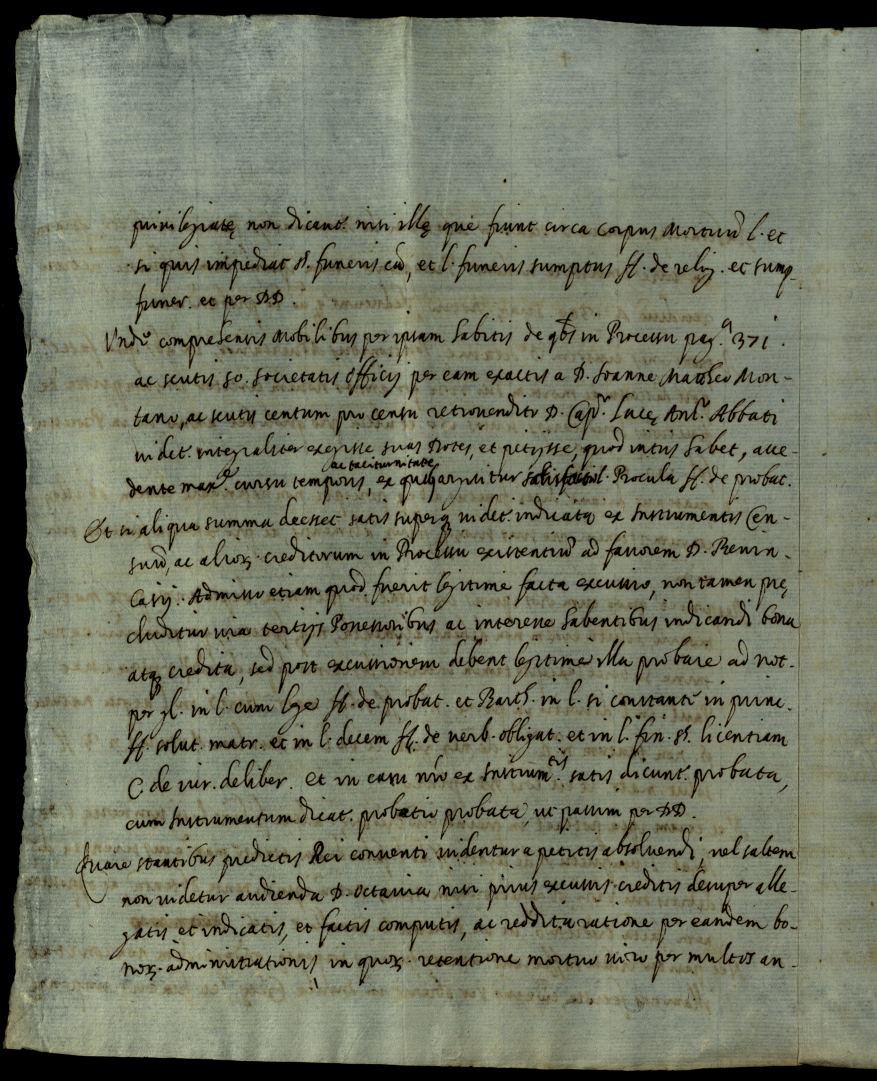 priuilegiatę non dicant.r nisi illę quę fiunt circa Corpus Mortuũ l. et
si quis impediat §. funeris cã, et l. funeris sumptus ff. de relig. et sump.
funer. et per DD.
Vndẽ compręhensis Mobilibus per ipsam habitis de qbs in Processu pag.a 371.
ac scutis 50. societatis officij per eam exactis a D. Joanne Mattheo Mon-
tano, ac scutis centum pro censu retrouendito D. Capo. Lucę Ant.o Abbati
uidet.r integraliter exegisse suas Dotes, et petijsse, quod intus habet, acce-
dente max.e cursu temporis,
ac taciturnitate
ex qua arguitur l. Procula ff. de probat.
Et si aliqua summa deesset satis superq uidet.r indicata ex Instrumentis Cen-
suũ, ac alioꝝ creditorum in Processu existentiũ ad fauorem D. Renin-
casij. Admisso etiam quod fuerit legitime facta excussio, non tamen prę
cluditur uia tertijs Possessoribus ac interesse habentibus indicandi bona
atq credita, sed post excussionem debent legitime illa probare ad not.
per gl. in l. cum lege ff. de probat. et Barth. in l. si constantẽ in princ.
ff. solut. matr. et in l. decem ff. de uerb. obligat. et in l. fin. §. licentiam
C. de iur. deliber. et in casu nr̃o ex Instrum.tis satis dicunt.r probata,
cum Instrumentum dicat.r probatio probata, ut passim per DD.
Quare stantibus predictis Rei conuenti uidentur a petitis absoluendi, uel saltem
non uidetur audienda D. Octauia nisi prius excussis creditis desuper alle-
gatis et indicatis, et factis computis, ac reddita ratione per eandem bo-
noꝝ administrationis, in quoꝝ retentione mortuo uiro per multos an-